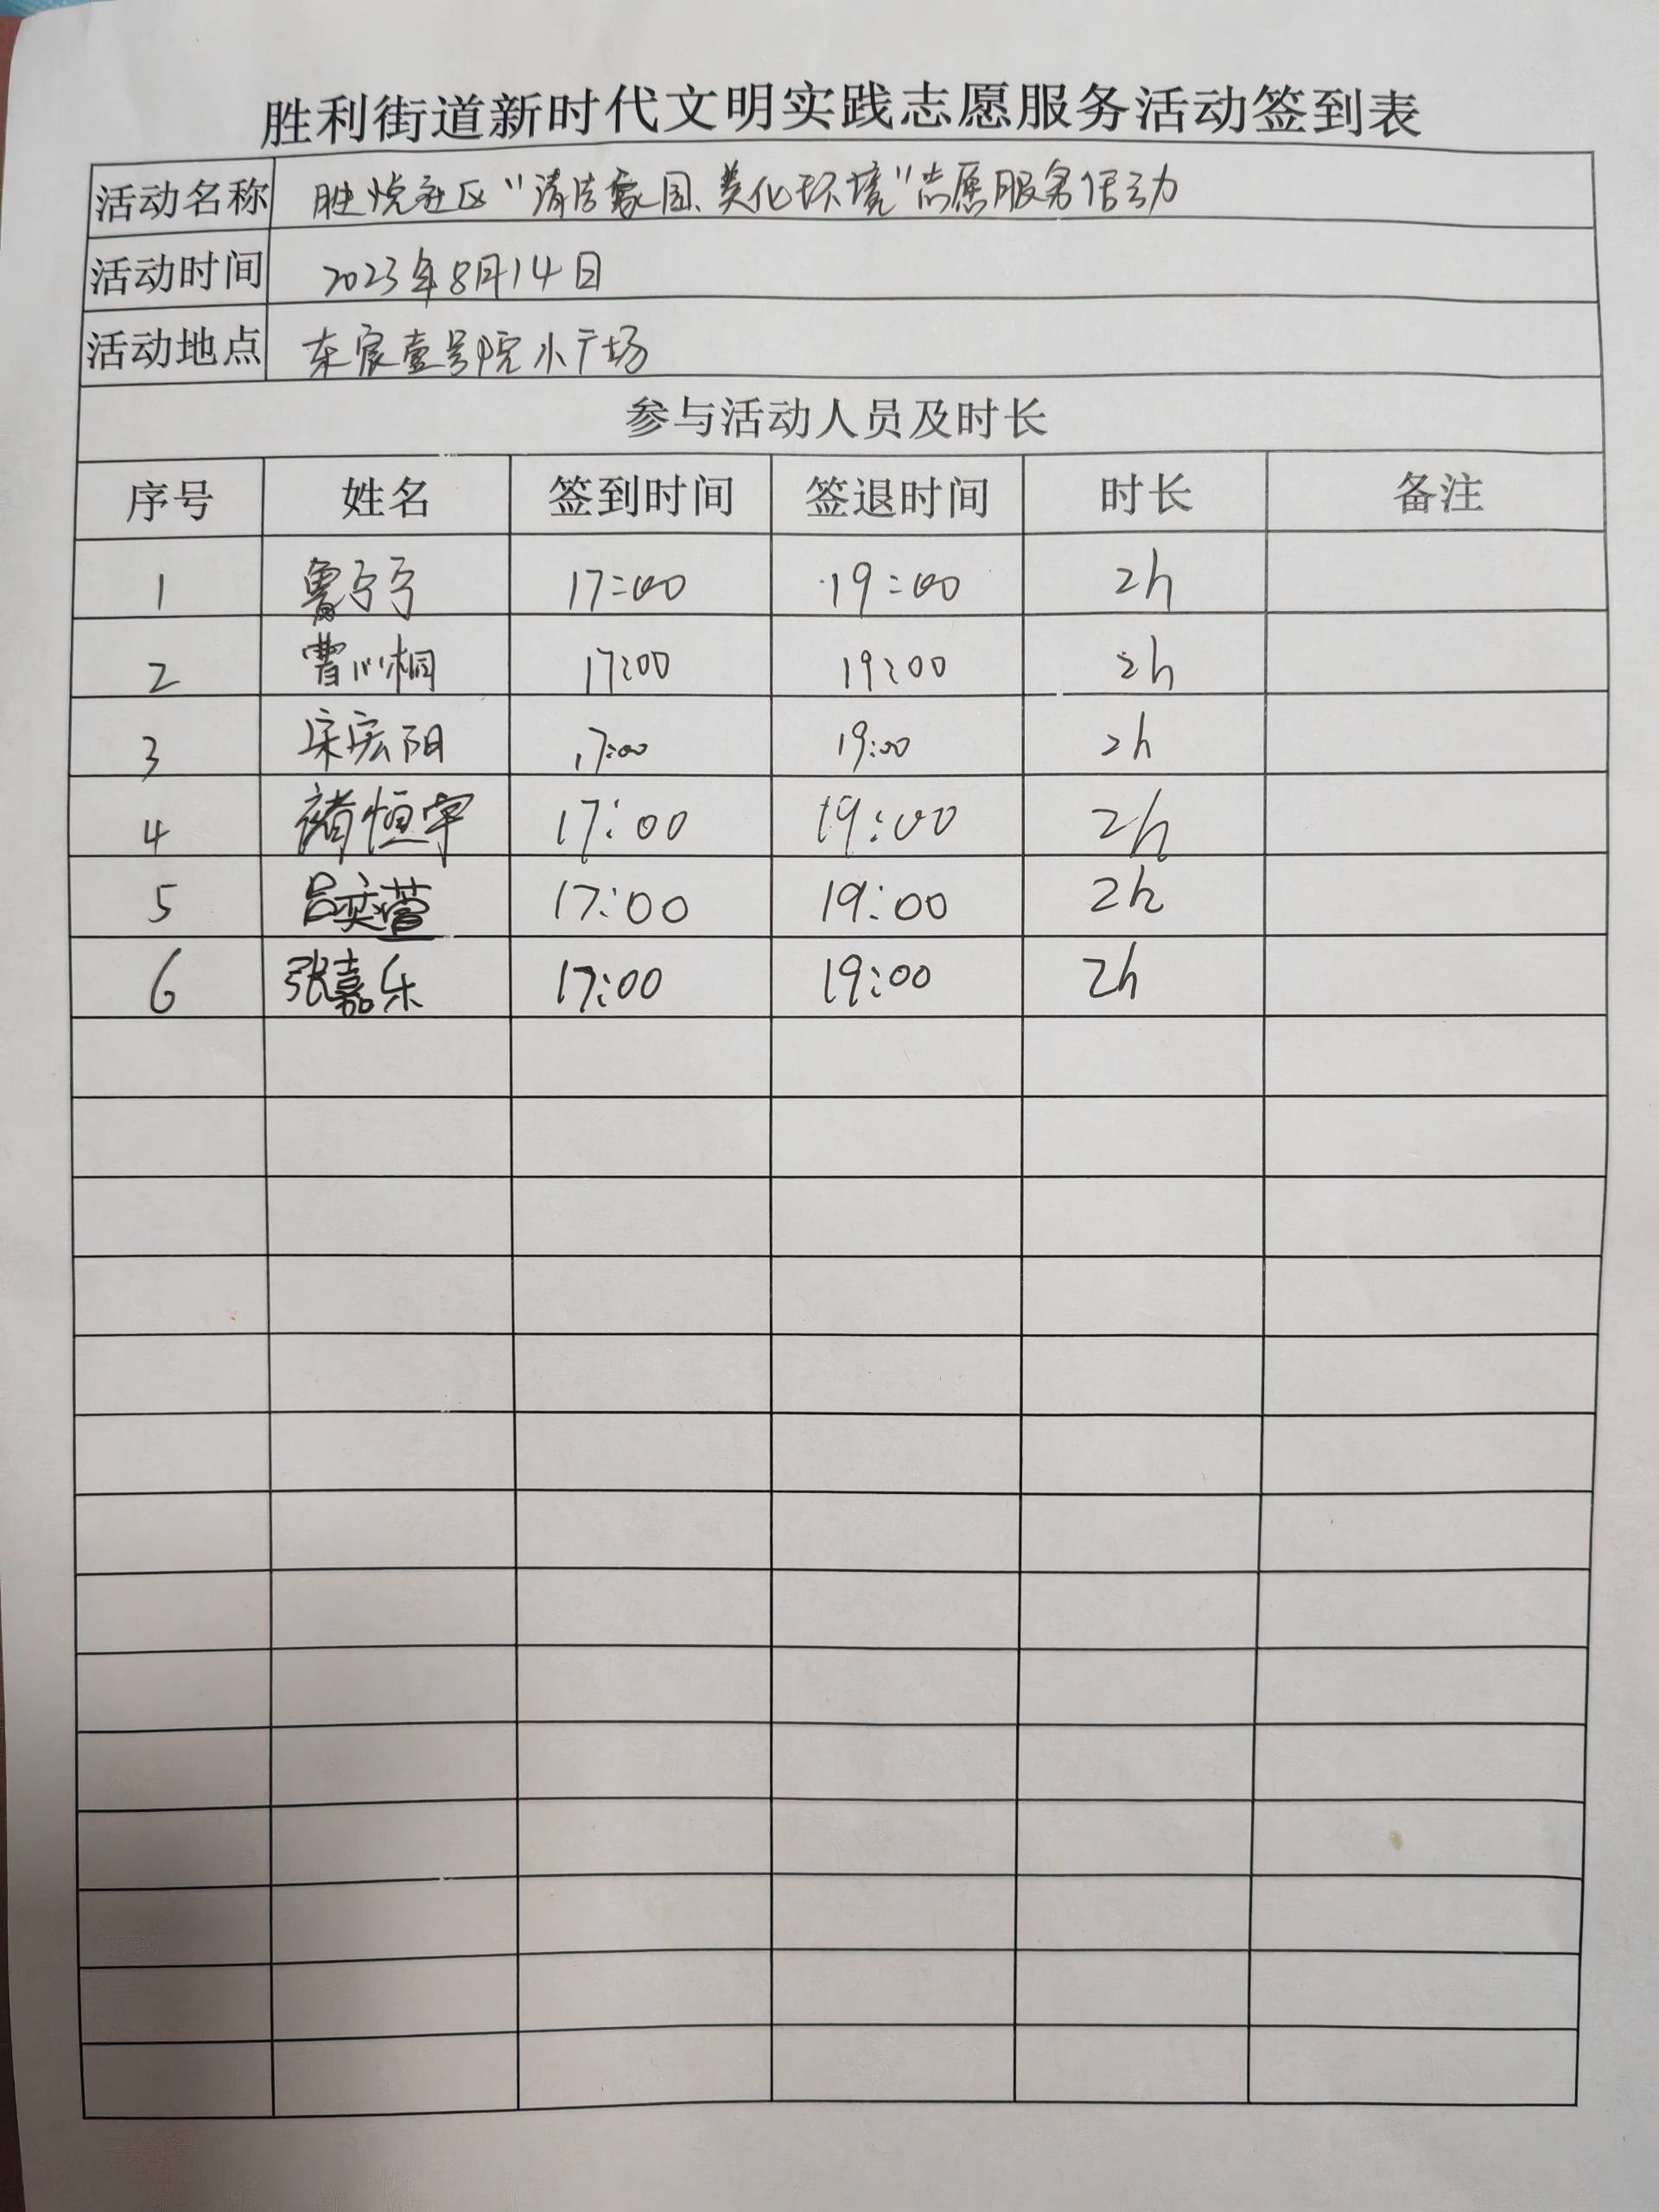 胜利街道新时代文明实践志愿服务活动签到表
活动名称 胜悦社区“清洁家园、美化环境”志愿服务活动
活动时间 2023年8月14日
活动地点 东宸壹号院小广场
参与活动人员及时长
序号 姓名 签到时间 签退时间 时长 备注
1 17:00 19:00 2h
2 17:00 19:00 2h
3 宋宏阳 17:00 19:00 2h
4 褚恒宇 17:00 19:00 2h
5 吕奕萱 17:00 19:00 2h
6 张嘉乐 17:00 19:00 2h